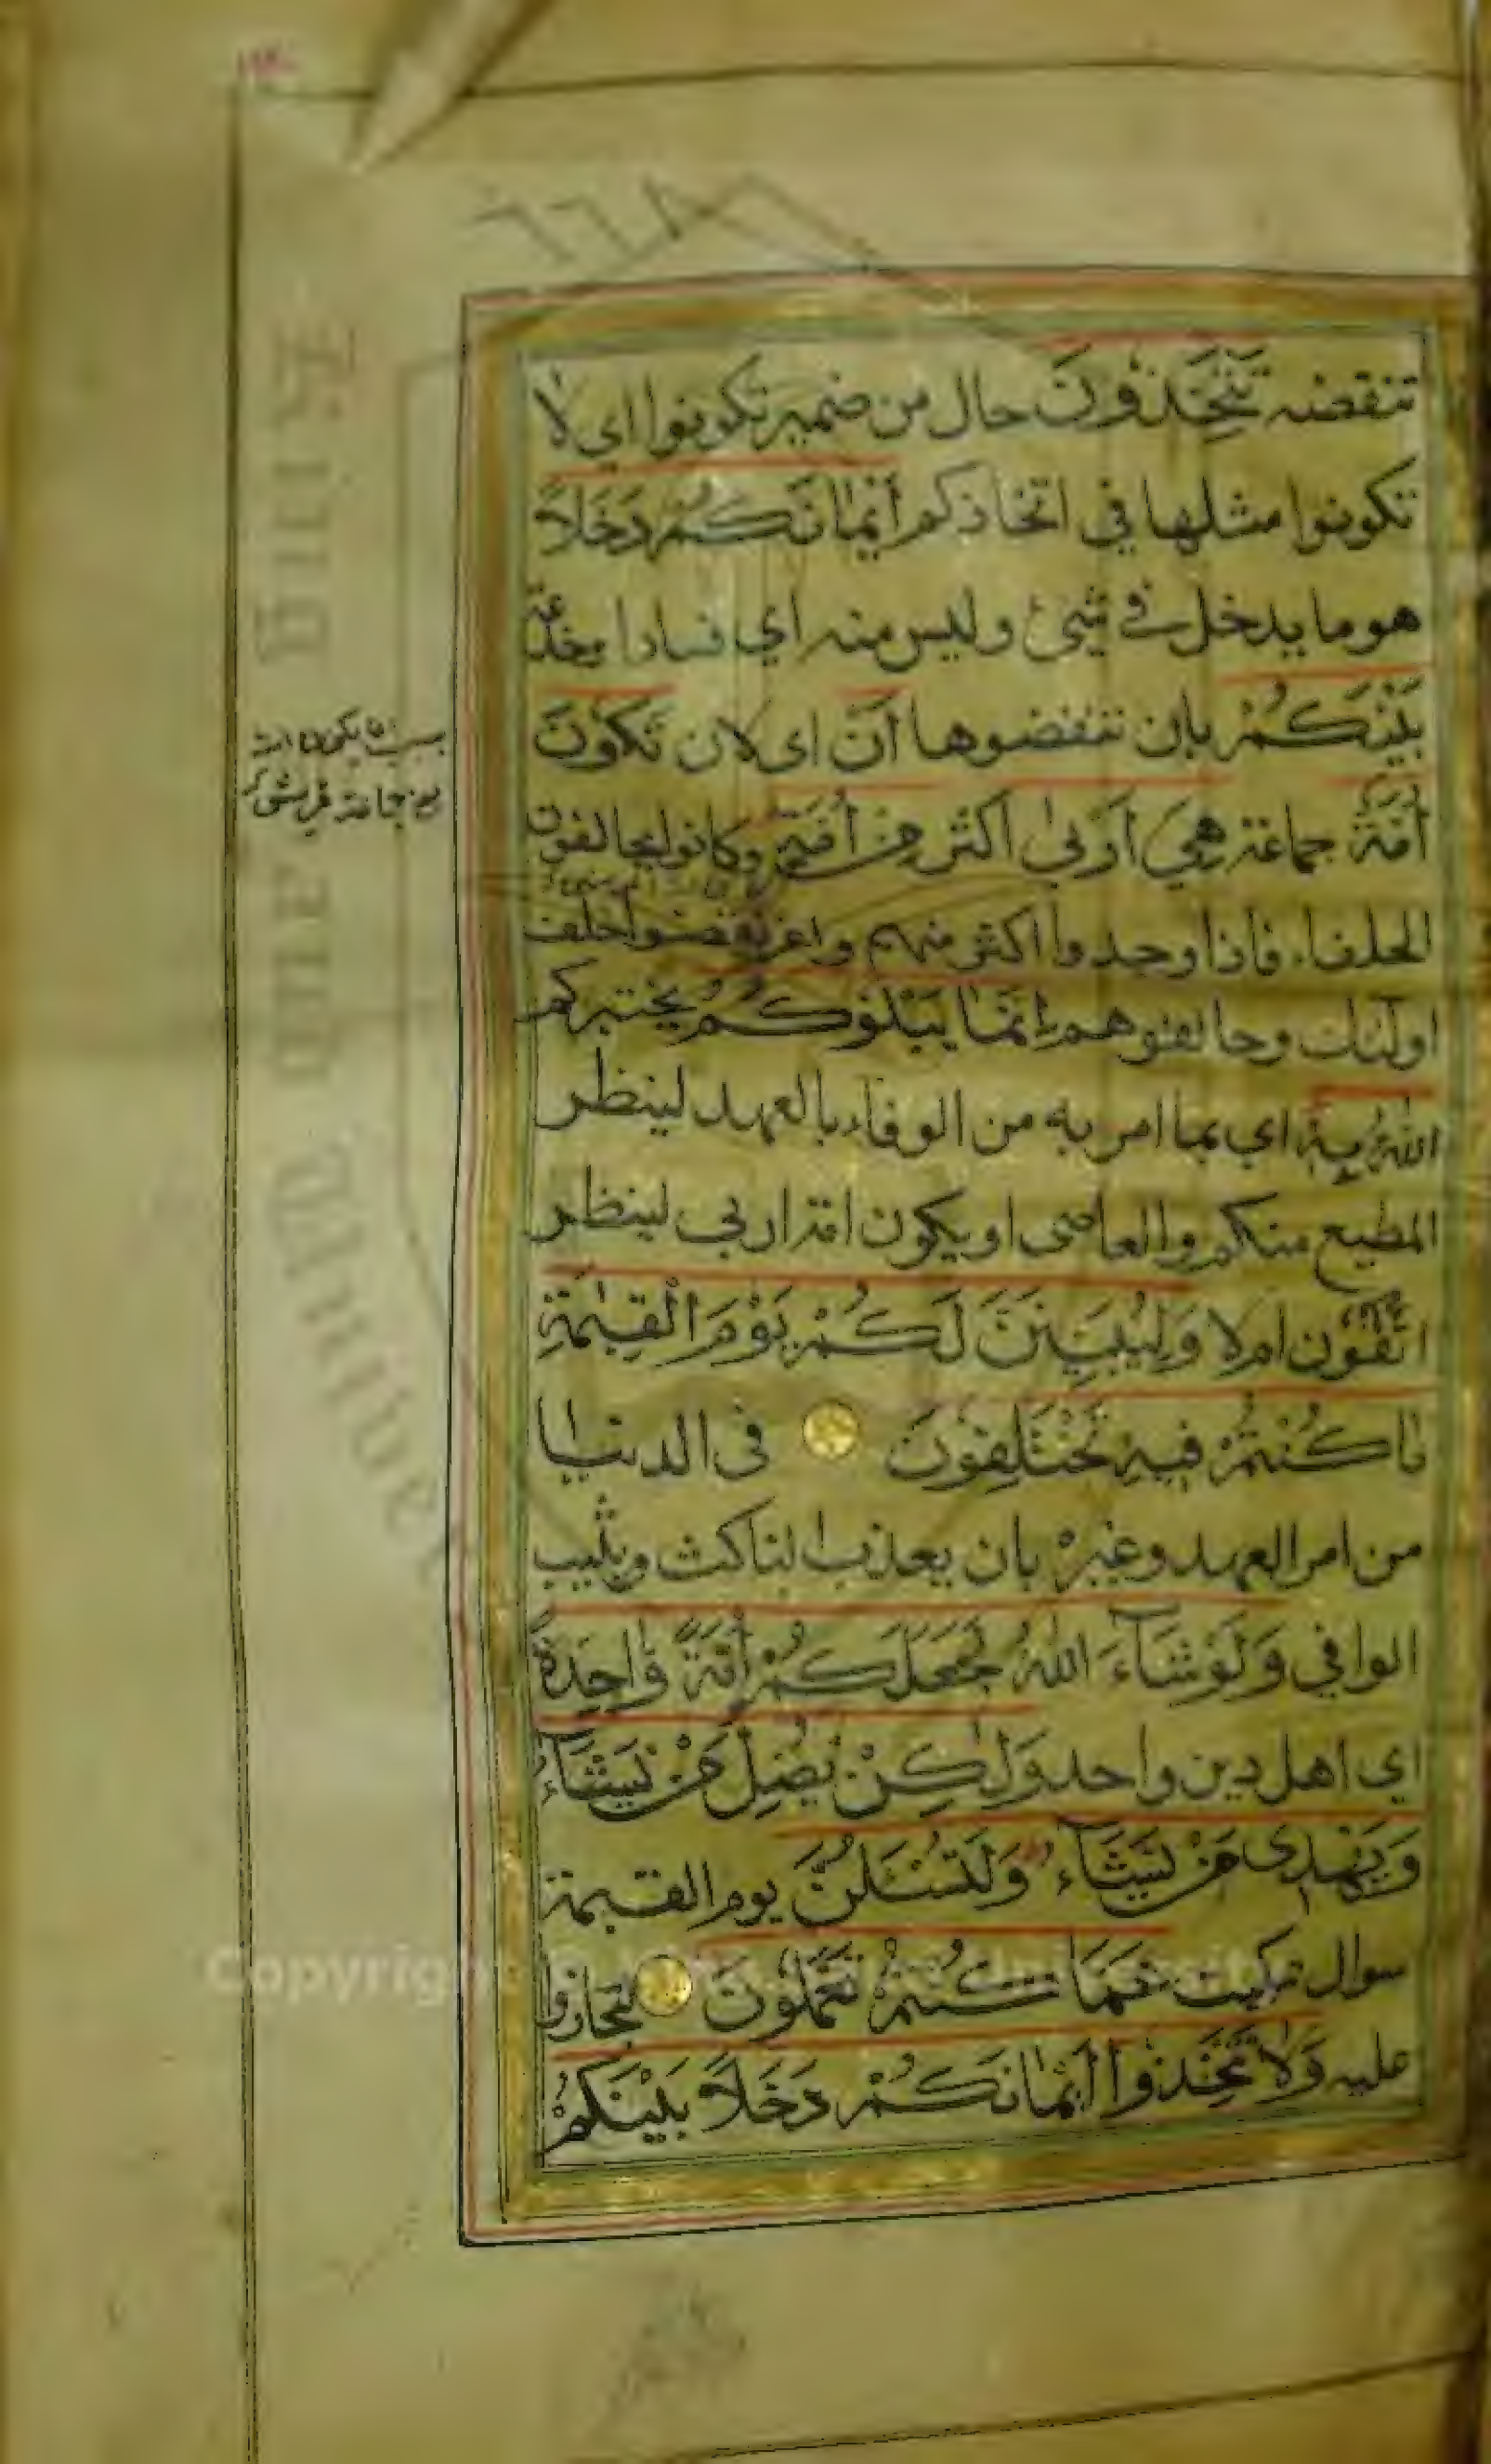 تنقضه تَتَّخِذُونَ حال من ضمير تكونوا اي لا
تكونوا مثلها في اتخاذكم أَيْمَانَكُمْ دَخَلاً
هو ما يدخل في شيئ وليس منه اي فسادا وخدعة
بَيْنَكُمْ بان تنقضوها أَنْ اى لان تَكُونَ
أُمَّةٌ جماعة هِيَ أَرْبَى اكثر مِنْ أُمَّةٍ وكانوا يحالفون
الحلفاء فاذا وجدوا اكثر منهم واعز نقضوا حلف
اولئك وحالفوهم إِنَّمَا يَبْلُوكُمْ يختبركم
اللهُ بِهِ اي بما امر به من الوفاء بالعهد لينظر
المطيع منكم والعاصى او يكون امة اربي لينظر
اتفون ام لا وَلَيُبَيِّنَنَّ لَكُمْ يَوْمَ الْقِيٰمَةِ
مَا كُنْتُمْ فِيهِ تَخْتَلِفُونَ فى الدنيا
من امر العهد وغيره بان يعذب الناكث ويثيب
الوافي وَلَوْ شَآءَ اللهُ لَجَعَلَكُمْ أُمَّةً وَاحِدَةً
اي اهل دين واحد وَلٰكِنْ يُضِلُّ مَنْ يَشَآءُ
وَيَهْدِى مَنْ يَشَآءُ وَلَتُسْئَلُنَّ يوم القيمة
سوال تبكيت عَمَّا كُنْتُمْ تَعْمَلُونَ لتجازوا
عليه وَلَا تَتَّخِذُوا أَيْمَانَكُمْ دَخَلاً بَيْنَكُمْ
جماعة قريش